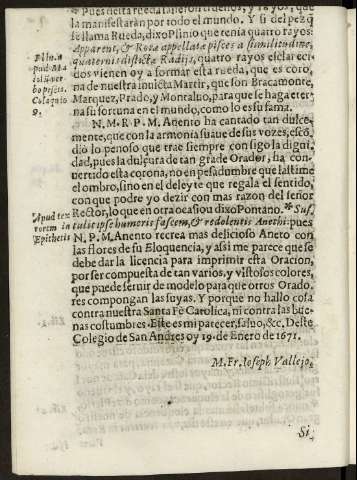 Pues desta rueda salieron truenos, y rayos, que
la manifestaràn por todo el mundo. Y si del pez q̃
se llama Rueda, dixo Plinio que tenia quatro rayos:
Apparent, & Rota appellata pisces a similitudine,
quaternis distincta Radijs, quatro rayos esclareci-
dos vienen oy a formar esta rueda, que es coro-
na de nuestra invicta Martir, que son Bracamonte,
Marquez, Prado, y Montaluo, para que se haga eter-
na su fortuna en el mundo, como lo es su fama.
N. M. R. P. M. Anento ha cantado tan dulce-
mente, que con la armonia suaue de sus vozes, escõ-
diò lo penoso que trae siempre consigo la digni-
dad, pues la dulçura de tan grãde Orador, ha con-
uertido esta corona, no en pesadumbre que lastime
el ombro, sino en deleyte que regala el sentido,
con que podre yo dezir con mas razon del señor
Rector, lo que en otra ocasiou dixo Pontano. * Suf-
tulit ipse humeris fascem, & redolentis Anethi: pues
N. P. M. Anento recrea mas delicioso Aneto con
las flores de su Eloquencia, y assi me parece que se
debe dar la licencia para imprimir esta Oracion,
por ser compuesta de tan varios, y vistosos colores,
que puede seruir de modelo para que otros Orado-
res compongan las suyas. Y porque no hallo cosa
contra nuestra Santa Fè Catolica, ni contra las bue-
nas costumbres. Este es mi parecer, saluo, &c. Deste
Colegio de San Andres oy 19. de Enero de 1671.
M. Fr. Ioseph Vallejo.
Si
Plin. a
Colaquio
9.
Apud tex
torem in
Epithetis